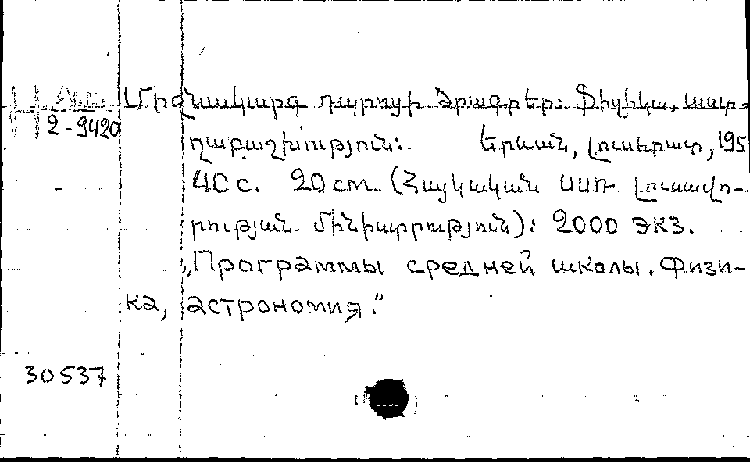 Միջնակարգ դպրոցի ծրագրեր: Ֆիզիկա, աստ-
2-9420
ղաբաշխություն: Երևան, Լուսհրատ, 195
40 с. 20 cm (Հայկական ՍՍՌ Լուսավո-
րության մինիստրություն): 2000 экз.
„Программы средней школы. Физи-
ка, астрономия."
30537